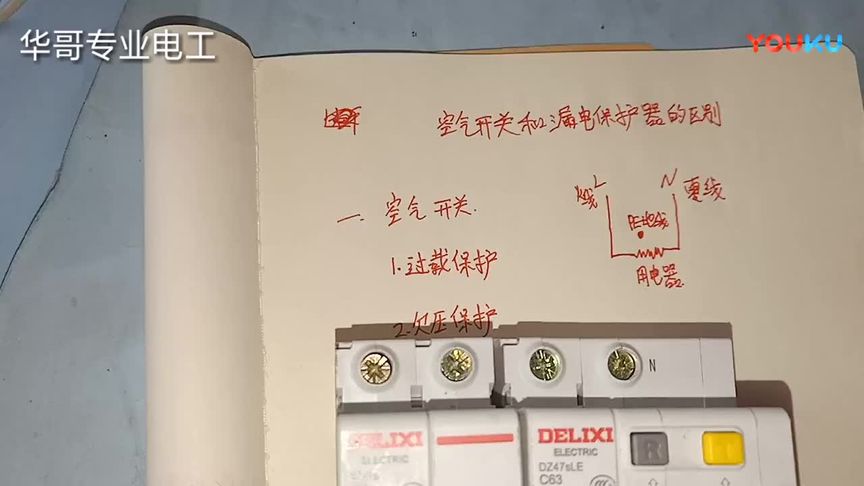 华哥专业电工
YOUKU
空气开关和漏电保护器的区别
火线 L N 零线
一. 空气开关.
PE地线
1.过载保护
用电器
2.欠压保护
N
DELIXI
ELECTRIC
DELIXI
ELECTRIC
DZ47sLE
C63
R
T